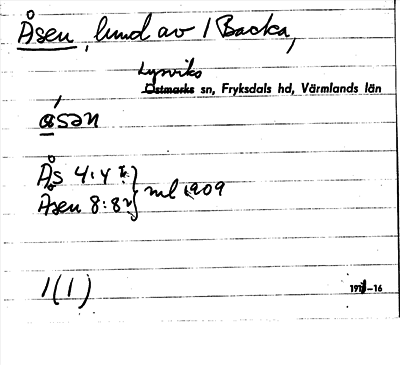 Åsen, lund av 1 Backa,
Lysviks
Östmarks sn, Fryksdals hd, Värmlands län
ásən
Ås 4:4
Åsen 8:8 ml 1909
1(1)
-16